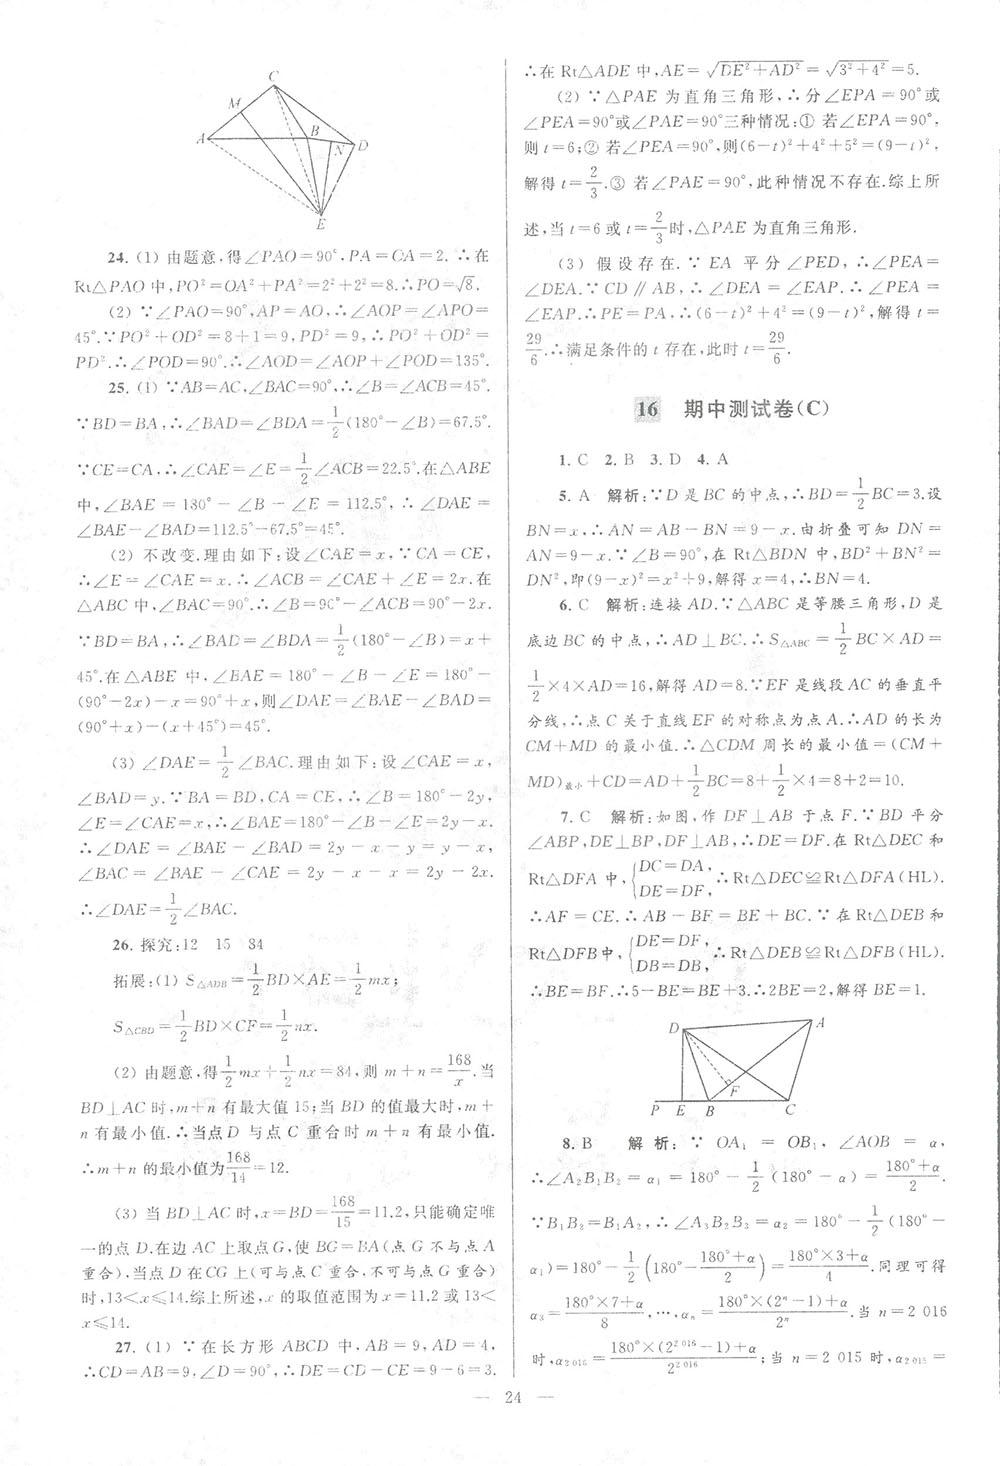 C
M
A
B
N
D
E
24. (1) 由题意,得∠PAO=90°,PA=OA=2.∴在
Rt△PAO中,PO²=OA²+PA²=2²+2²=8.∴PO=√8.
(2) ∵∠PAO=90°,AP=AO,∴∠AOP=∠APO=
45°.∵PO²+OD²=8+1=9,PD²=9,∴PO²+OD²=
PD².∴∠POD=90°.∴∠AOD=∠AOP+∠POD=135°.
25. (1) ∵AB=AC,∠BAC=90°,∴∠B=∠ACB=45°.
∵BD=BA,∴∠BAD=∠BDA=1/2(180°-∠B)=67.5°.
∵CE=CA,∴∠CAE=∠E=1/2∠ACB=22.5°.在△ABE
中,∠BAE=180°-∠B-∠E=112.5°,∴∠DAE=
∠BAE-∠BAD=112.5°-67.5°=45°.
(2) 不改变.理由如下:设∠CAE=x,∵CA=CE,
∴∠E=∠CAE=x.∴∠ACB=∠CAE+∠E=2x.在
△ABC中,∠BAC=90°.∴∠B=90°-∠ACB=90°-2x.
∵BD=BA,∴∠BAD=∠BDA=1/2(180°-∠B)=x+
45°.在△ABE中,∠BAE=180°-∠B-∠E=180°-
(90°-2x)-x=90°+x,则∠DAE=∠BAE-∠BAD=
(90°+x)-(x+45°)=45°.
(3) ∠DAE=1/2∠BAC.理由如下:设∠CAE=x,
∠BAD=y.∵BA=BD,CA=CE,∴∠B=180°-2y,
∠E=∠CAE=x.∴∠BAE=180°-∠B-∠E=2y-x.
∴∠DAE=∠BAE-∠BAD=2y-x-y=y-x,
∠BAC=∠BAE-∠CAE=2y-x-x=2y-2x.
∴∠DAE=1/2∠BAC.
26. 探究:12 15 84
拓展:(1) S△ADB=1/2BD×AE=1/2mx;
S△CBD=1/2BD×CF=1/2nx.
(2) 由题意,得1/2mx+1/2nx=84,则m+n=168/x.当
BD⊥AC时,m+n有最大值15;当BD的值最大时,m+
n有最小值.∴当点D与点C重合时m+n有最小值.
∴m+n的最小值为168/14=12.
(3) 当BD⊥AC时,x=BD=168/15=11.2,只能确定唯
一的点D.在边AC上取点G,使BG=BA(点G不与点A
重合).当点D在CG上(可与点C重合,不可与点G重合)
时,13<x≤14.综上所述,x的取值范围为x=11.2或13<
x≤14.
27. (1) ∵在长方形ABCD中,AB=9,AD=4,
∴CD=AB=9,∠D=90°,∴DE=CD-CE=9-6=3.
∴在Rt△ADE中,AE=√(DE²+AD²)=√(3²+4²)=5.
(2) ∵△PAE为直角三角形,∴分∠EPA=90°或
∠PEA=90°或∠PAE=90°三种情况:① 若∠EPA=90°,
则t=6;② 若∠PEA=90°,则(6-t)²+4²+5²=(9-t)²,
解得t=2/3.③ 若∠PAE=90°,此种情况不存在.综上所
述,当t=6或t=2/3时,△PAE为直角三角形.
(3) 假设存在.∵EA平分∠PED,∴∠PEA=
∠DEA.∵CD∥AB,∴∠DEA=∠EAP.∴∠PEA=
∠EAP.∴PE=PA,∴(6-t)²+4²=(9-t)²,解得t=
29/6.∴满足条件的t存在,此时t=29/6.
16 期中测试卷(C)
1. C 2. B 3. D 4. A
5. A 解析:∵D是BC的中点,∴BD=1/2BC=3.设
BN=x,∴AN=AB-BN=9-x.由折叠可知DN=
AN=9-x.∵∠B=90°,在Rt△BDN中,BD²+BN²=
DN²,即(9-x)²=x²+9,解得x=4,∴BN=4.
6. C 解析:连接AD.∵△ABC是等腰三角形,D是
底边BC的中点,∴AD⊥BC.∴S△ABC=1/2BC×AD=
1/2×4×AD=16,解得AD=8.∵EF是线段AC的垂直平
分线,∴点C关于直线EF的对称点为点A.∴AD的长为
CM+MD的最小值.∴△CDM周长的最小值=(CM+
MD)最小+CD=AD+1/2BC=8+1/2×4=8+2=10.
7. C 解析:如图,作DF⊥AB于点F.∵BD平分
∠ABP,DE⊥BP,DF⊥AB,∴DE=DF.在Rt△DEC和
Rt△DFA中,{DC=DA, DE=DF,∴Rt△DEC≌Rt△DFA(HL).
∴AF=CE.∴AB-BF=BE+BC.∵在Rt△DEB和
Rt△DFB中,{DE=DF, DB=DB,∴Rt△DEB≌Rt△DFB(HL).
∴BE=BF.∴5-BE=BE+3.∴2BE=2,解得BE=1.
D
A
F
P E B C
8. B 解析:∵OA₁=OB₁,∠AOB=α,
∴∠A₂B₁B₂=α₁=180°-1/2(180°-α)=(180°+α)/2.
∵B₁B₂=B₁A₂,∴∠A₃B₂B₃=α₂=180°-1/2(180°-
α₁)=180°-1/2(180°-(180°+α)/2)=(180°×3+α)/4.同理可得
α₃=(180°×7+α)/8,…,αₙ=(180°×(2ⁿ-1)+α)/2ⁿ.当n=2 016
时,α₂ ₀₁₆=(180°×(2^2 016-1)+α)/2^2 016;当n=2 015时,α₂ ₀₁₅=
— 24 —